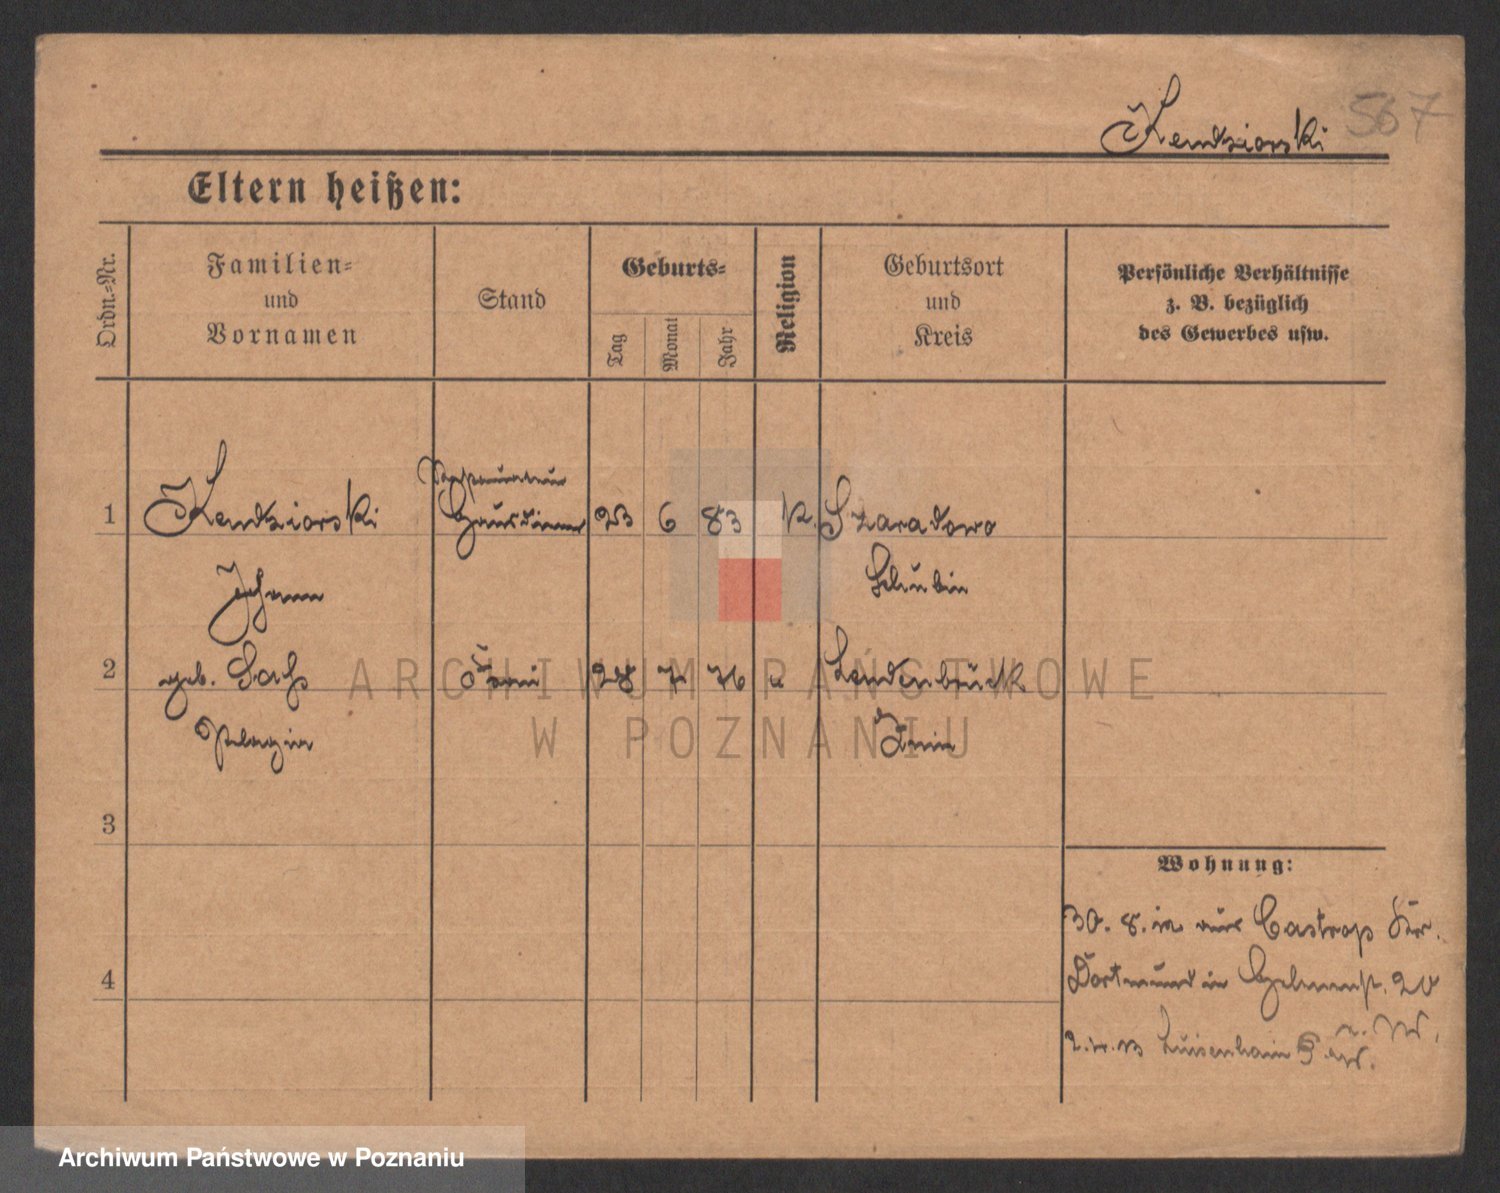 Kendziorski 567
Eltern heißen:
Ordn.-Nr.
Familien-
und
Vornamen
Stand
Geburts-
Tag
Monat
Jahr
Religion
Geburtsort
und
Kreis
Persönliche Verhältnisse
z. B. bezüglich
des Gewerbes usw.
1 Kendziorski 23 6 83 k. Szaradowo
Johann Schubin
2 geb. Sach 28 76
Pelagia Znin
3
4
Wohnung:
30. 8. aus Castrop Kr.
Dortmund in 20
Luisenhain
ARCHIWUM PAŃSTWOWE
W POZNANIU
Archiwum Państwowe w Poznaniu